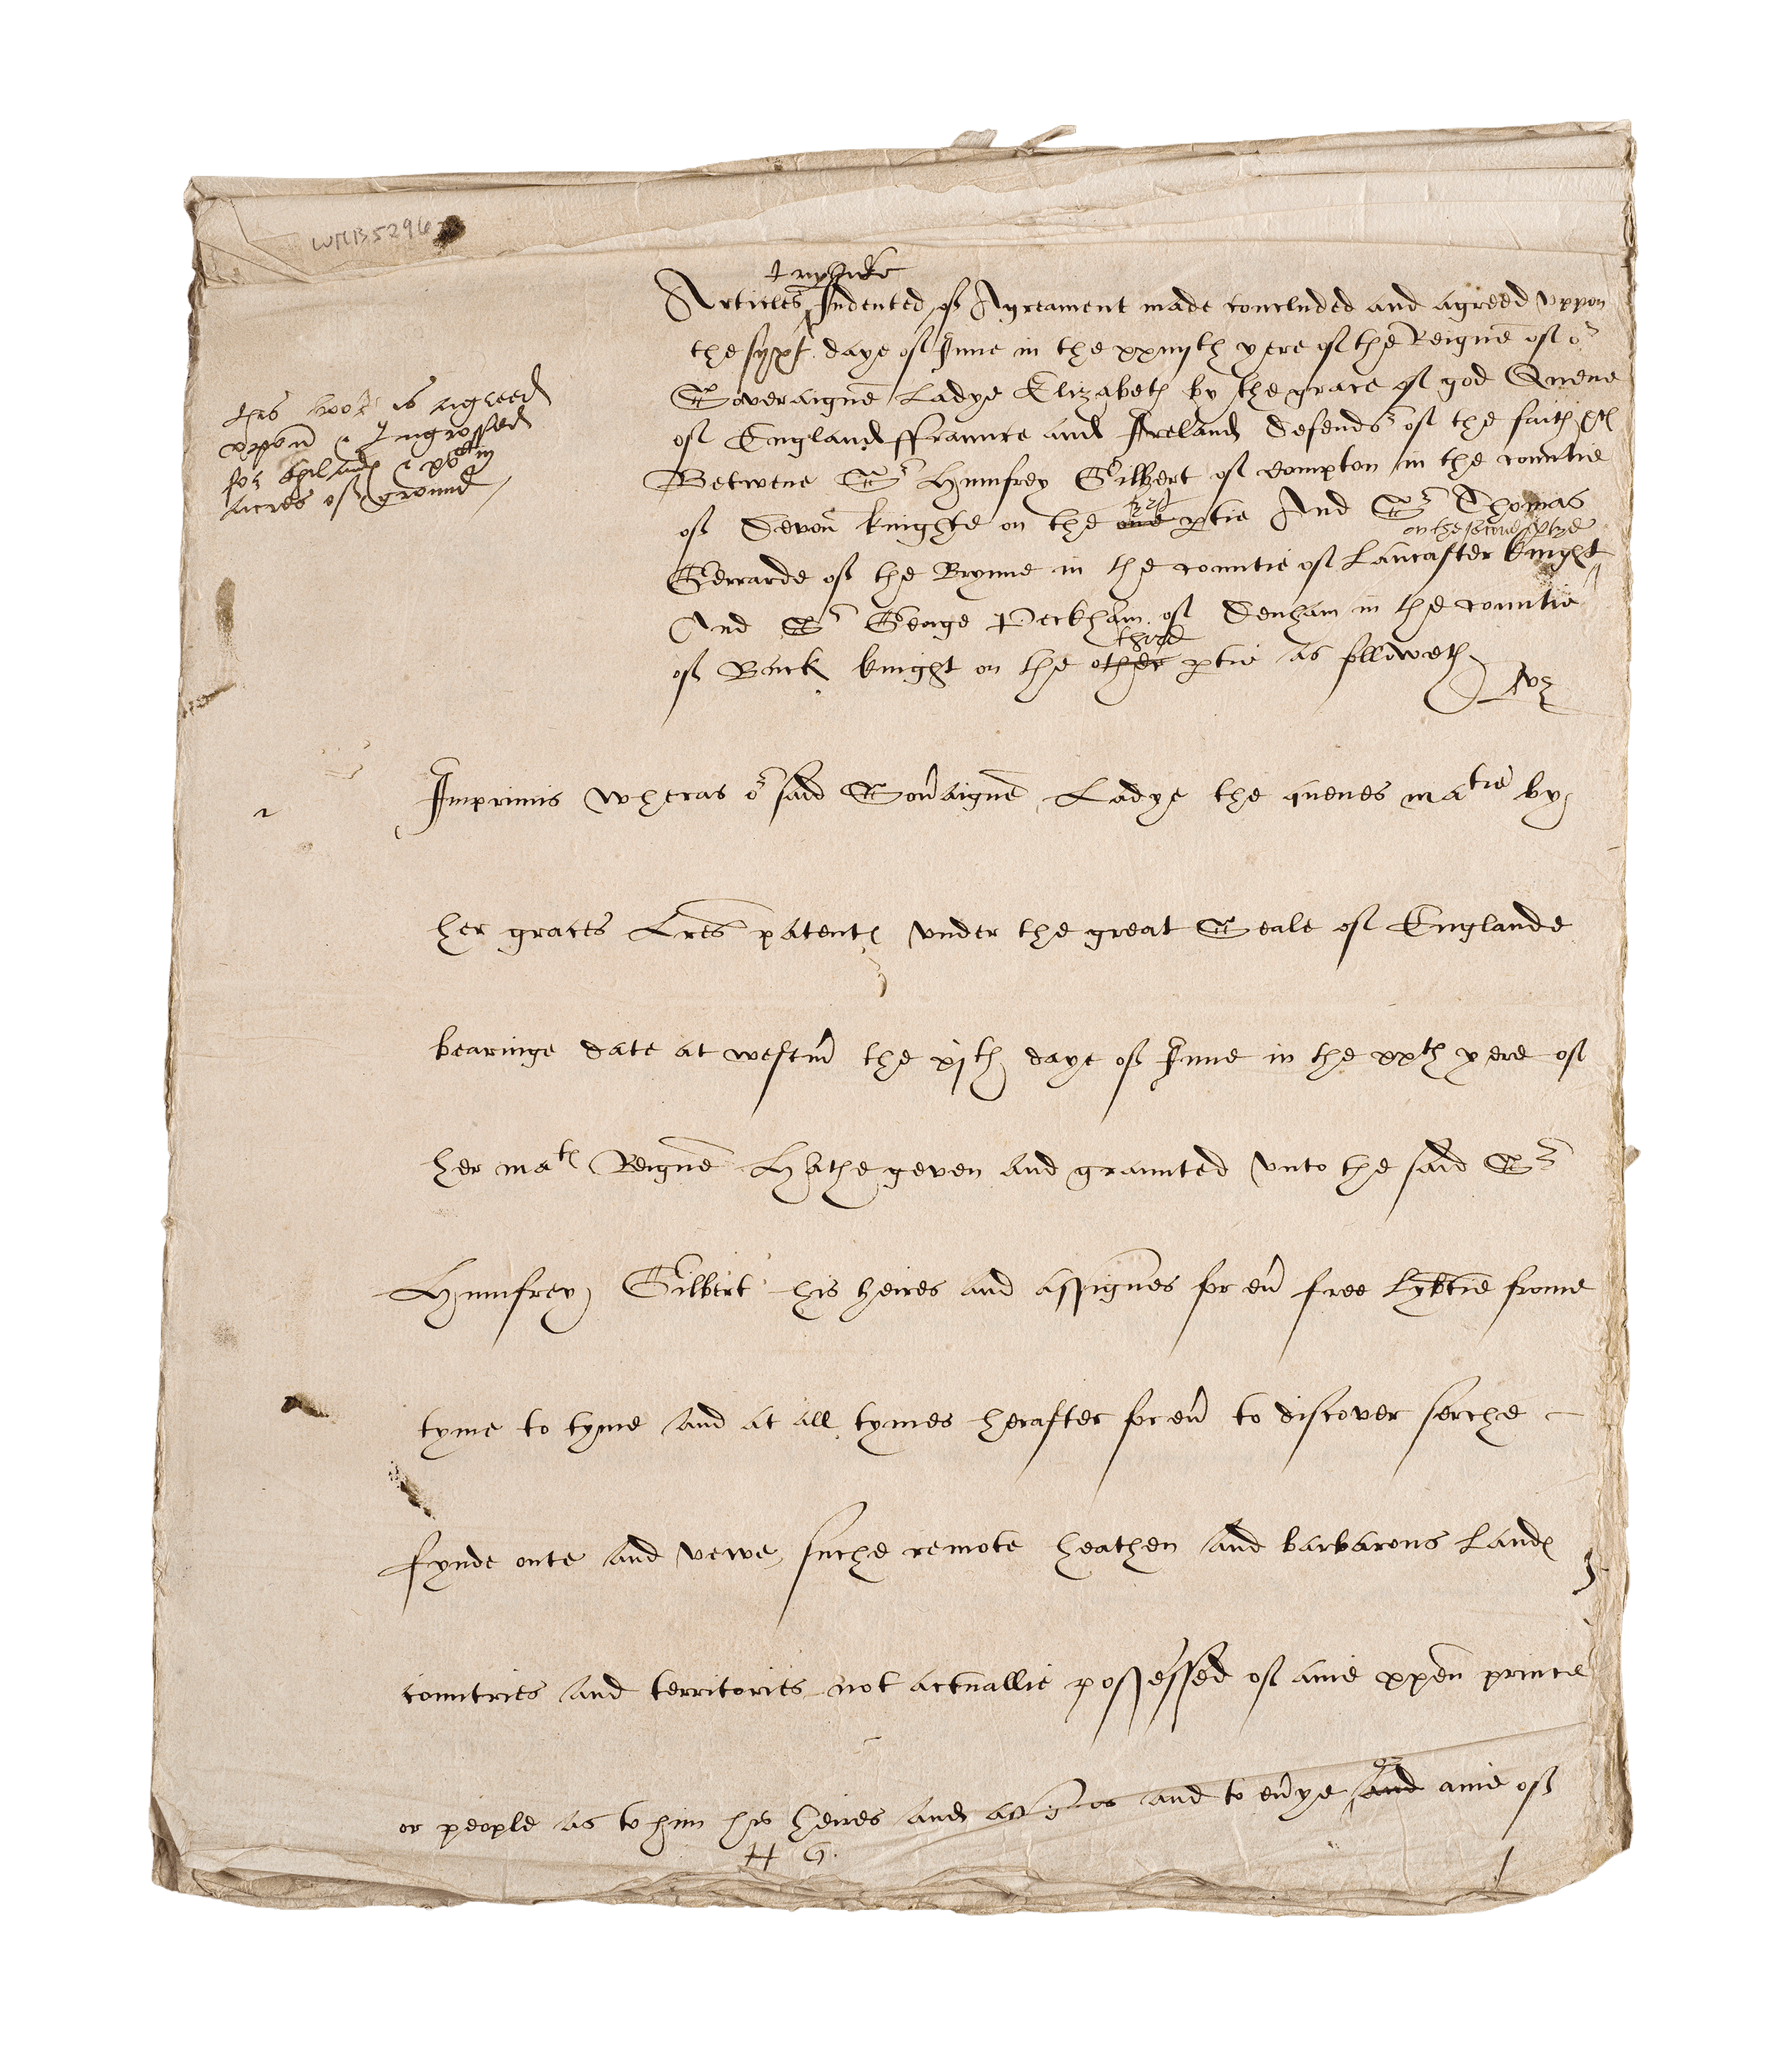 WMB5296
tryplicite
Articles Indented of Agreament made concluded and agreed vppon
the syxt daye of June in the xxiiijth yere of the Reigne of or
Soveraigne Ladye Elizabeth by the grace of god Quene
of England ffraunce and Ireland Defendr of the faith &c
Betwene Sr Humfrey Gilbert of Compton in the countie
of Devon knighte on the one first ptie And Sr Thomas
on the second ptye
Gerrarde of the Brynne in the countie of Lancaster knight
And Sr George Peckham of Denham in the countie
of Buck knight on the other third ptie as followeth
vz
this book is agreed
vppon & Ingrossed
for
acres of ground
Imprimis wheras or said Sovaigne Ladye the quenes matie by
her graces Lres patent under the great Seale of Englande
bearinge date at westm the xjth daye of June in the xxth yere of
her mats Reigne Hathe geven and graunted vnto the said Sr
Humfrey Gilbert his heires and assignes for ev free lybtie frome
tyme to tyme and at all tymes herafter for ev to discover serche
fynde oute and vewe suche remote heathen and barbarous Landes
countries and territories not actuallie possessed of anie xpen prince
or people as to him his heires and assignes and to evye and or anie of
H G
1